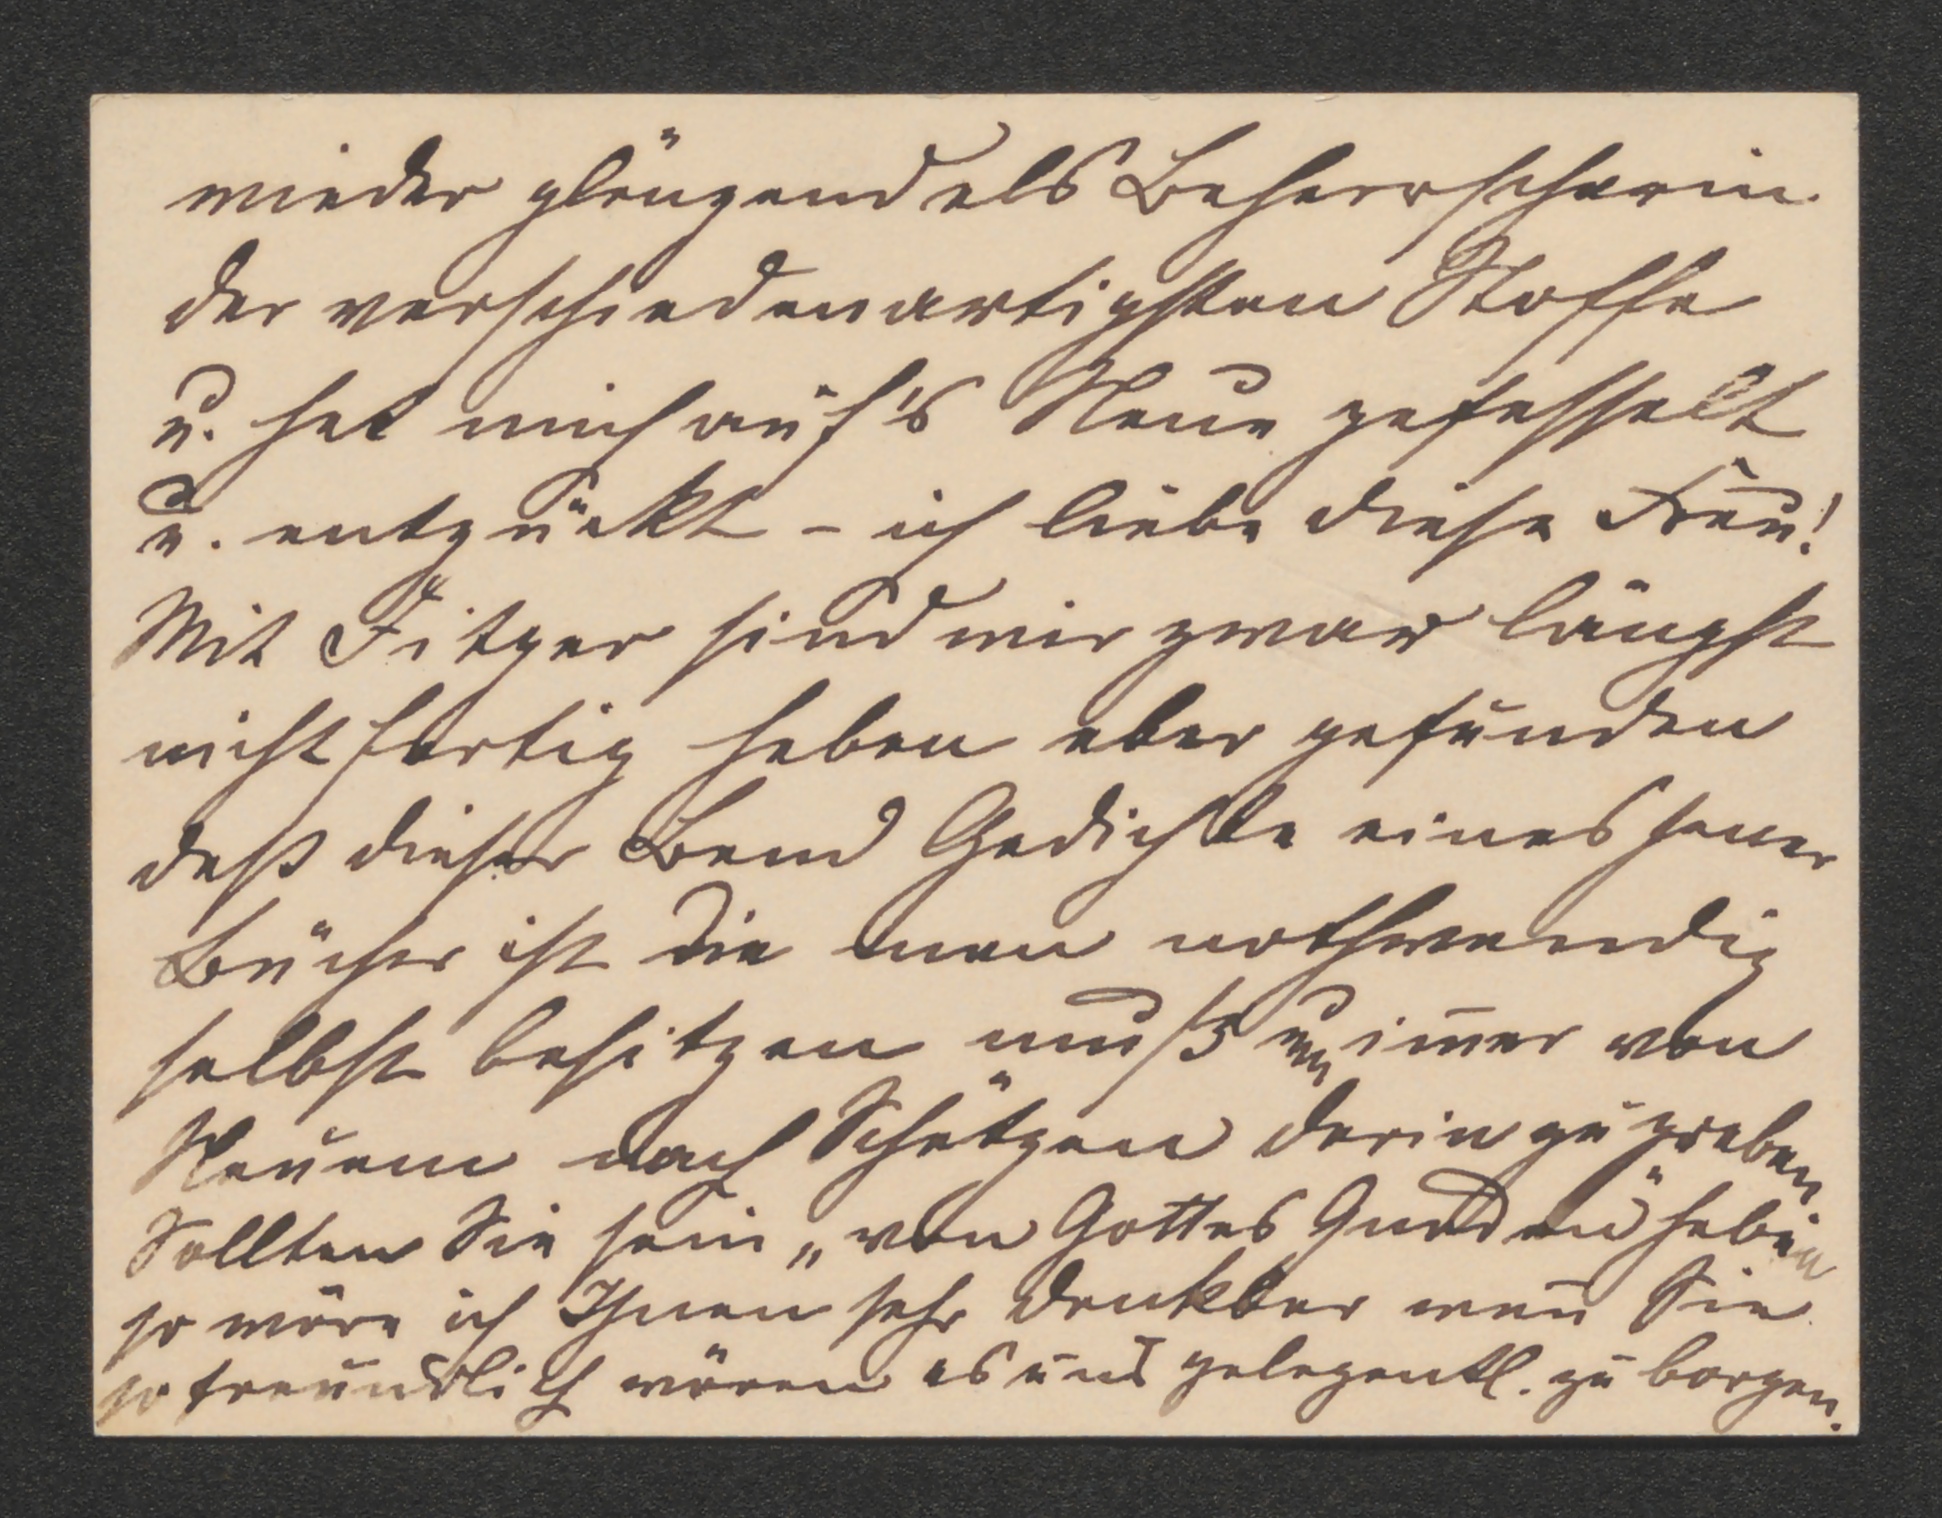 wieder glänzend als Beherrscherin
der verschiedenartigsten Stoffe
u. hat mich auf's Neue gefesselt
u. entzückt – ich liebe diese Frau!
Mit Fitger sind wir zwar längst
nicht fertig haben aber gefunden
daß dieser Band Gedichte eines jener
Bücher ist die man nothwendig
selbst besitzen muß um im̄er von
Neuem nach Schätzen darin zu graben
Sollten Sie sein „von Gottes Gnaden" haben
so wäre ich Ihnen sehr dankbar wen̄ Sie
so freundlich wären es uns gelegentl. zu borgen.